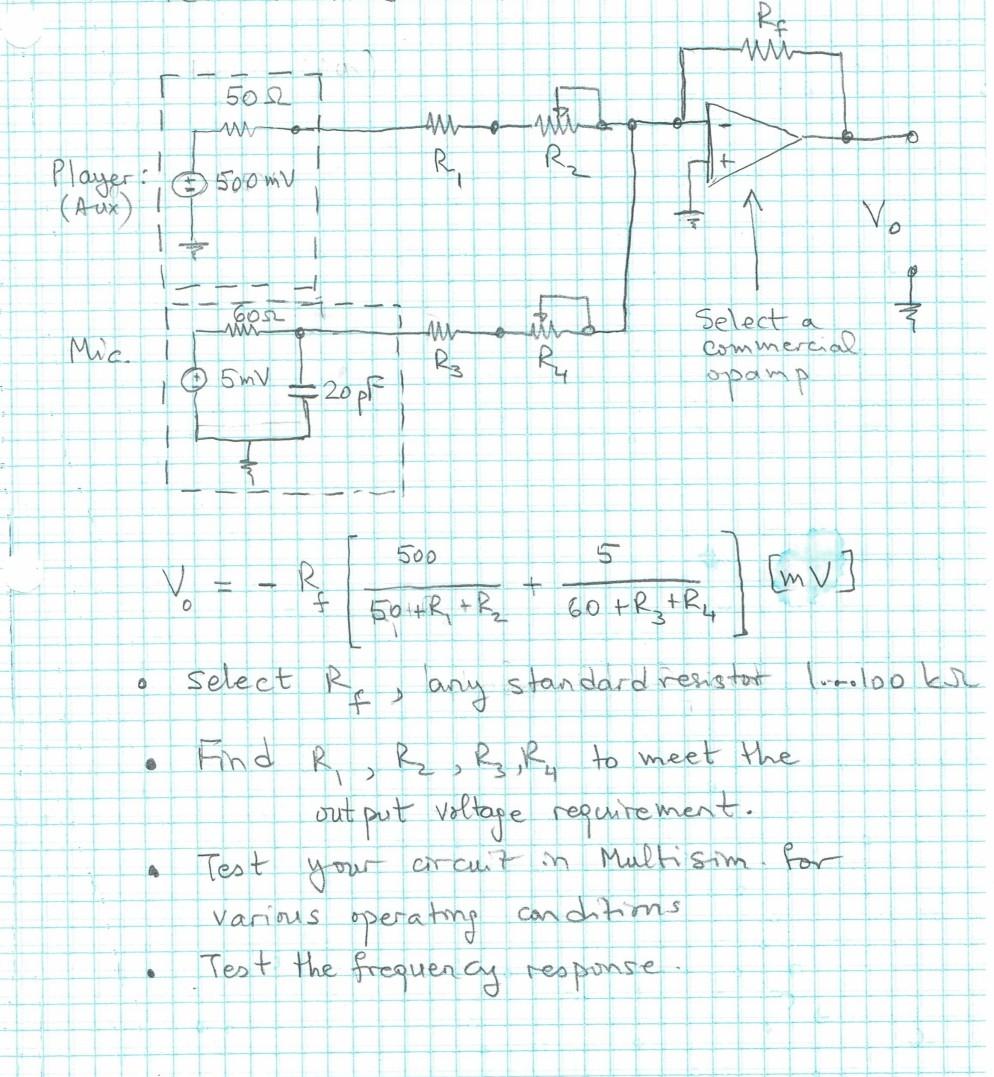 R_f
50 Ω
R_1
R_2
-
+
Player:
(Aux)
500 mV
V_o
60Ω
Mic.
5mV
20 pF
R_3
R_4
Select a
commercial
opamp
V_o = - R_f [ 500 / (50 + R_1 + R_2) + 5 / (60 + R_3 + R_4) ] [mV]
• Select R_f, any standard resistor 1....100 kΩ
• Find R_1, R_2, R_3, R_4 to meet the
output voltage requirement.
• Test your circuit in Multisim for
various operating conditions
• Test the frequency response.